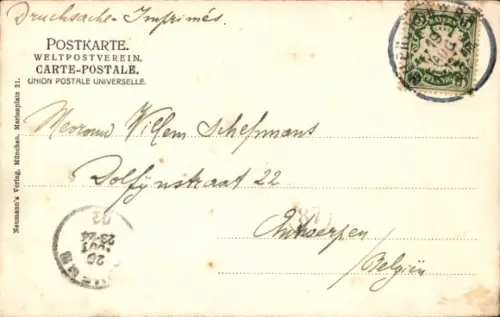 Drucksache - Imprimés.
POSTKARTE.
WELTPOSTVEREIN.
CARTE-POSTALE.
UNION POSTALE UNIVERSELLE.
Neumann's Verlag, München, Marienplatz 21.
BAYERN
5
5
Willem Schepmans
Dolfijnstraat 22
Antwerpen
/Belgiën
20
23-24